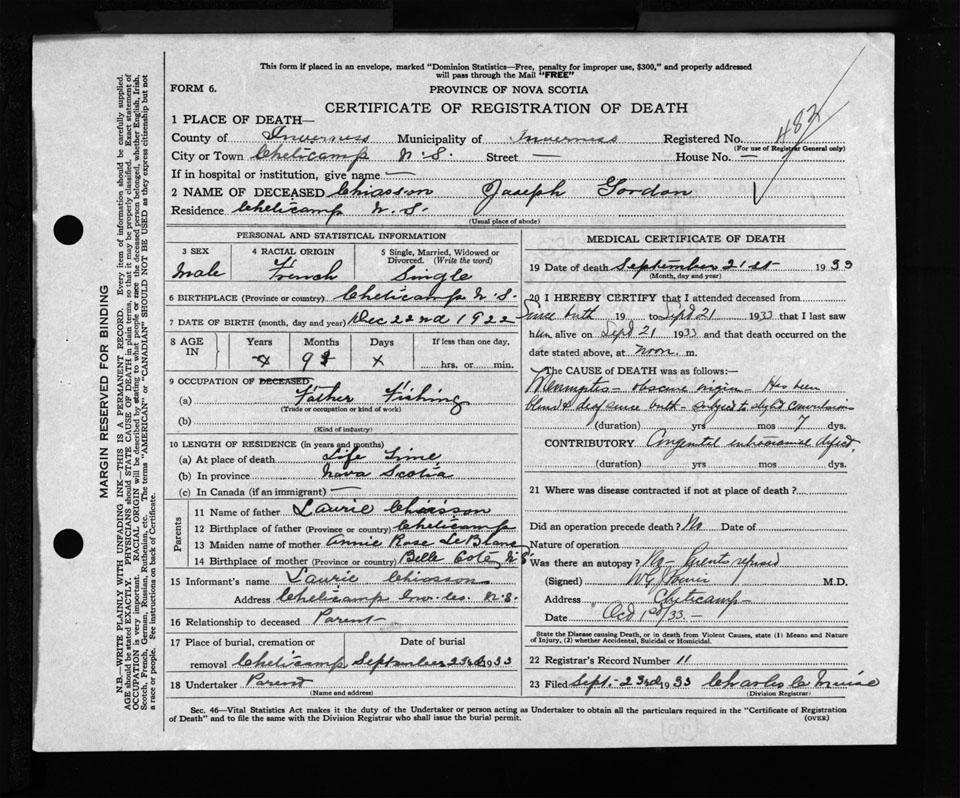 This form if placed in an envelope, marked "Dominion Statistics—Free, penalty for improper use, $300," and properly addressed
will pass through the Mail "FREE"
FORM 6.
PROVINCE OF NOVA SCOTIA
CERTIFICATE OF REGISTRATION OF DEATH
482
1 PLACE OF DEATH—
County of Inverness Municipality of Inverness Registered No.
(For use of Registrar General only)
City or Town Cheticamp N.S. Street — House No. —
If in hospital or institution, give name —
2 NAME OF DECEASED Chiasson Joseph Gordon
Residence Cheticamp N.S.
(Usual place of abode)
PERSONAL AND STATISTICAL INFORMATION
3 SEX 4 RACIAL ORIGIN 5 Single, Married, Widowed or
Divorced. (Write the word)
Male French Single
6 BIRTHPLACE (Province or country) Cheticamp N.S.
7 DATE OF BIRTH (month, day and year) Dec 22nd 1922
8 AGE
IN
Years Months Days If less than one day,
9 x hrs. or min.
9 OCCUPATION OF DECEASED:
(a) Father Fishing
(Trade or occupation or kind of work)
(b)
(Kind of industry)
10 LENGTH OF RESIDENCE (in years and months)
(a) At place of death Life Time
(b) In province Nova Scotia
(c) In Canada (if an immigrant) —
Parents
11 Name of father Laurie Chiasson
12 Birthplace of father (Province or country) Cheticamp
13 Maiden name of mother Annie Rose LeBlanc
14 Birthplace of mother (Province or country) Belle Cote N.S.
15 Informant's name Laurie Chiasson
Address Cheticamp Inv. Co. N.S.
16 Relationship to deceased Parent
17 Place of burial, cremation or Date of burial
removal Cheticamp September 23rd 1933
18 Undertaker Parent
(Name and address)
MEDICAL CERTIFICATE OF DEATH
19 Date of death September 21st 1933
(Month, day and year)
20 I HEREBY CERTIFY that I attended deceased from
Since birth 19 to Sept 21 1933 that I last saw
him alive on Sept 21 1933 and that death occurred on
date stated above, at noon m.
The CAUSE of DEATH was as follows:—
obscure origin — Has been
blind & deaf since birth — subject to slight convulsions
(duration) yrs mos 7 dys.
CONTRIBUTORY Congenital intracranial defect
(duration) yrs mos dys.
21 Where was disease contracted if not at place of death?
Did an operation precede death? No Date of
Nature of operation
Was there an autopsy? No — Parents refused
(Signed) M.D.
Address Cheticamp
Date Oct 1st/33 —
State the Disease causing Death, or in death from Violent Causes, state (1) Means and Nature
of Injury, (2) whether Accidental, Suicidal or Homicidal.
22 Registrar's Record Number 11
23 Filed Sept. 23rd 1933 Charles
(Division Registrar)
Sec. 46—Vital Statistics Act makes it the duty of the Undertaker or person acting as Undertaker to obtain all the particulars required in the "Certificate of Registration
of Death" and to file the same with the Division Registrar who shall issue the burial permit.
(OVER)
MARGIN RESERVED FOR BINDING
N.B.—WRITE PLAINLY WITH UNFADING INK—THIS IS A PERMANENT RECORD. Every item of information should be carefully supplied.
AGE should be stated EXACTLY. PHYSICIANS should STATE CAUSE OF DEATH in plain terms, so that it may be properly classified. Exact statement of
OCCUPATION is very important. RACIAL ORIGIN will be described by stating to what people or race the deceased person belonged, whether English, Irish,
Scotch, French, German, Russian, Ruthenian, etc. The terms "AMERICAN" or "CANADIAN" SHOULD NOT BE USED as they express citizenship but not
a race or people. See instructions on back of Certificate.